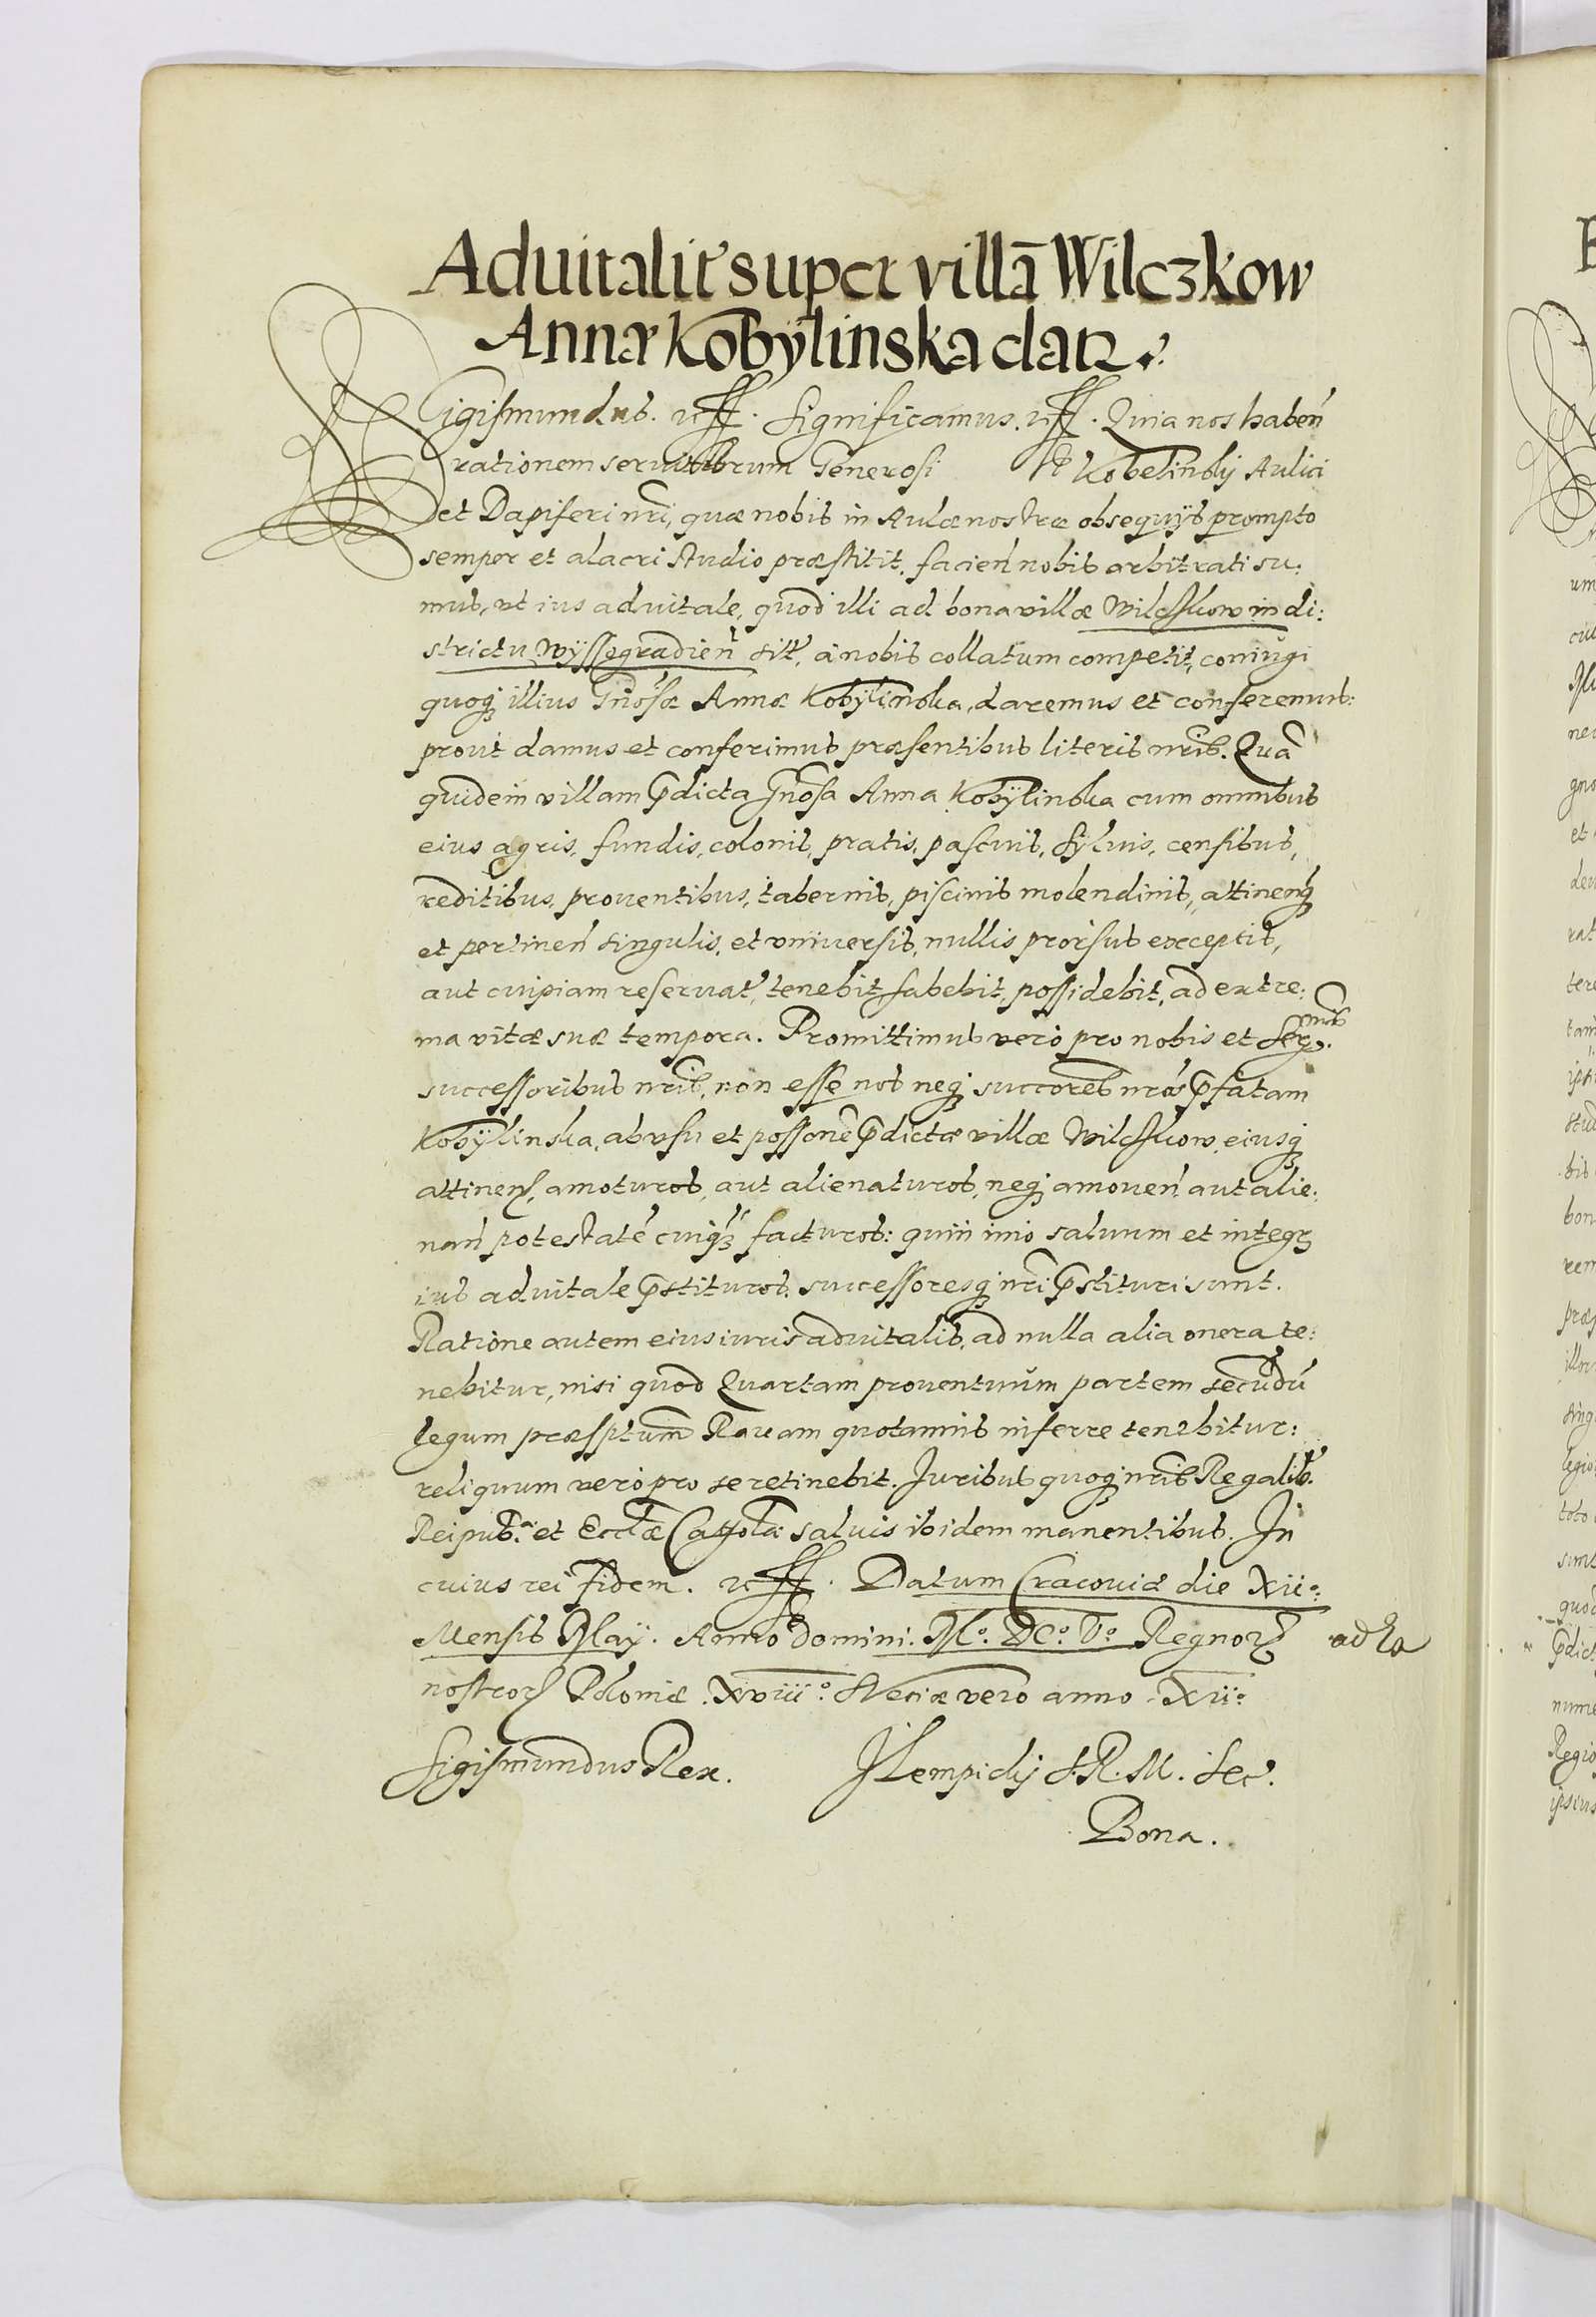 Aduitalit' super villā Wilczkow
Annæ Kobÿlinska datr.
Sigismundus. etc. Significamus. etc. Quia nos haben̄
rationem seruitiorum Generosi Kobelinskij Aulici
et Dapiferi nri, quæ nobis in Aulæ nostræ obsequijs prompto
semper et alacri studio præstitit. facien̄ nobis arbitrati su:
mus, vt ius aduitale, quod illi ad bona villæ Wilczkow in di:
strictu Wÿssegradien̄ sit', à nobis collatum competit, coniugi
quoq; illius Gnosæ Annæ Kobÿlinska, daremus et conferemus:
prout damus et conferimus præsentibus literis nris. Quā
quidem villam p̄dicta Gnosa Anna Kobÿlinska cum omnibus
eius agris, fundis, colonis, pratis, pascuis, syluis, censibus,
reditibus, prouentibus, tabernis, piscinis molendinis, attinen̄q;
et pertinen̄ singulis, et vniuersis, nullis prorsus exceptis,
aut cuipiam reseruat', tenebit habebit, possidebit, ad extre:
ma vitæ suæ tempora. Promittimus vero pro nobis et Ser.mis
successoribus nris, non esse nos neq; succores nros p̄fatam
Kobÿlinska, ab vsu et possone p̄dictæ villæ Wilczkow, eiusq;
attinen̄, amoturos, aut alienaturos, neq; amouen̄ aut alie:
nan̄ potestatē cuiq; facturos: quin imo saluum et integr
ius aduitale p̄stituros, successoresq; nri p̄stituri sunt.
Ratione autem eius iuris aduitalis, ad nulla alia onera te:
nebitur, nisi quod Quartam prouentuum partem secundū
legum præsptum Rauam quotannis inferre tenebitur:
reliquum vero pro se retinebit. Juribus quoq; nris Regalib'.
Reipub.æ et Ecclæ Cattolæ saluis ibidem manentibus. In
cuius rei fidem. etc. Datum Cracouiæ die XII°
Mensis Maÿ. Anno domini. M°. DC°. V°. Regnor
nostror Poloniæ. XVIII°. Sveciæ vero anno. XII°
Sigismundus Rex. J Lempicky S. R. M. Sec.
Bona.